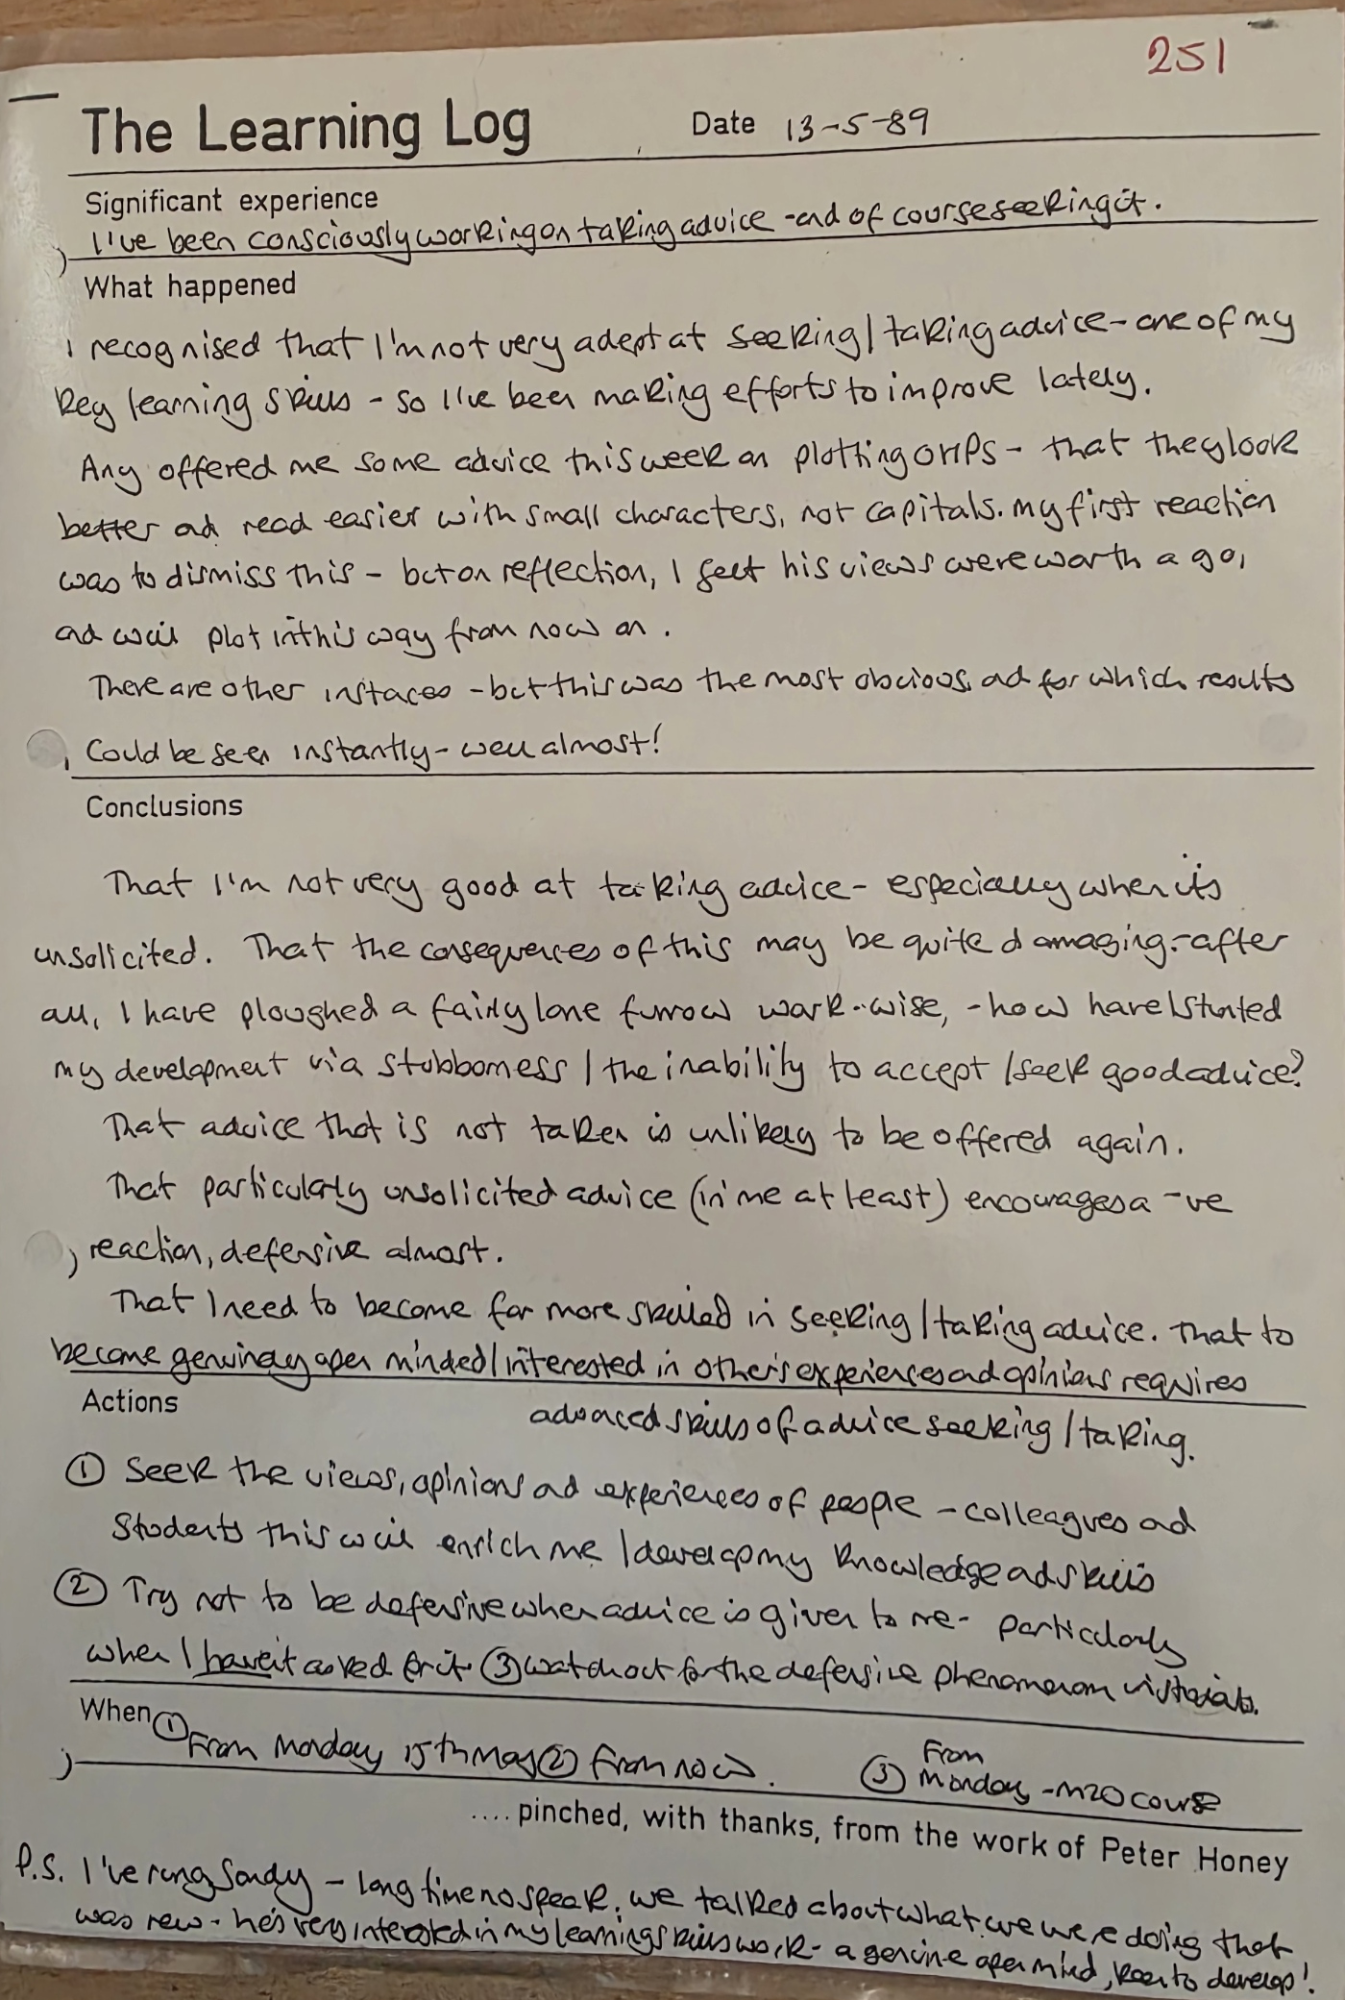 251
The Learning Log
Date 13-5-89
Significant experience
I've been consciously working on taking advice - and of course seeking it.
What happened
I recognised that I'm not very adept at seeking/taking advice - one of my
key learning skills - so I've been making efforts to improve lately.
Any offered me some advice this week on plotting OHPs - that they look
better and read easier with small characters, not capitals. My first reaction
was to dismiss this - but on reflection, I felt his views were worth a go,
and will plot in this way from now on.
There are other instaces - but this was the most obvious, and for which results
could be seen instantly - well almost!
Conclusions
That I'm not very good at taking advice - especially when its
unsolicited. That the consequences of this may be quite damaging - after
all, I have ploughed a fairly lone furrow work-wise, - how have I stunted
my development via stubborness / the inability to accept / seek good advice?
That advice that is not taken is unlikely to be offered again.
That particularly unsolicited advice (in me at least) encourages a -ve
reaction, defensive almost.
That I need to become far more skilled in seeking/taking advice. That to
become genuinely open minded/interested in other's experiences and opinions requires
advanced skills of advice seeking/taking.
Actions
① Seek the views, opinions and experiences of people - colleagues and
students this will enrich me / develop my knowledge and skills
② Try not to be defensive when advice is given to me - particularly
when I haven't asked for it. ③ watch out for the defensive phenomenon
When ① From Monday 15th May ② From now. ③ From
Monday - M20 course
....pinched, with thanks, from the work of Peter Honey
P.S. I've rung Sandy - long time no speak. we talked about what we were doing that
was new - he's very interested in my learning skills work - a genuine open mind, keen to develop!